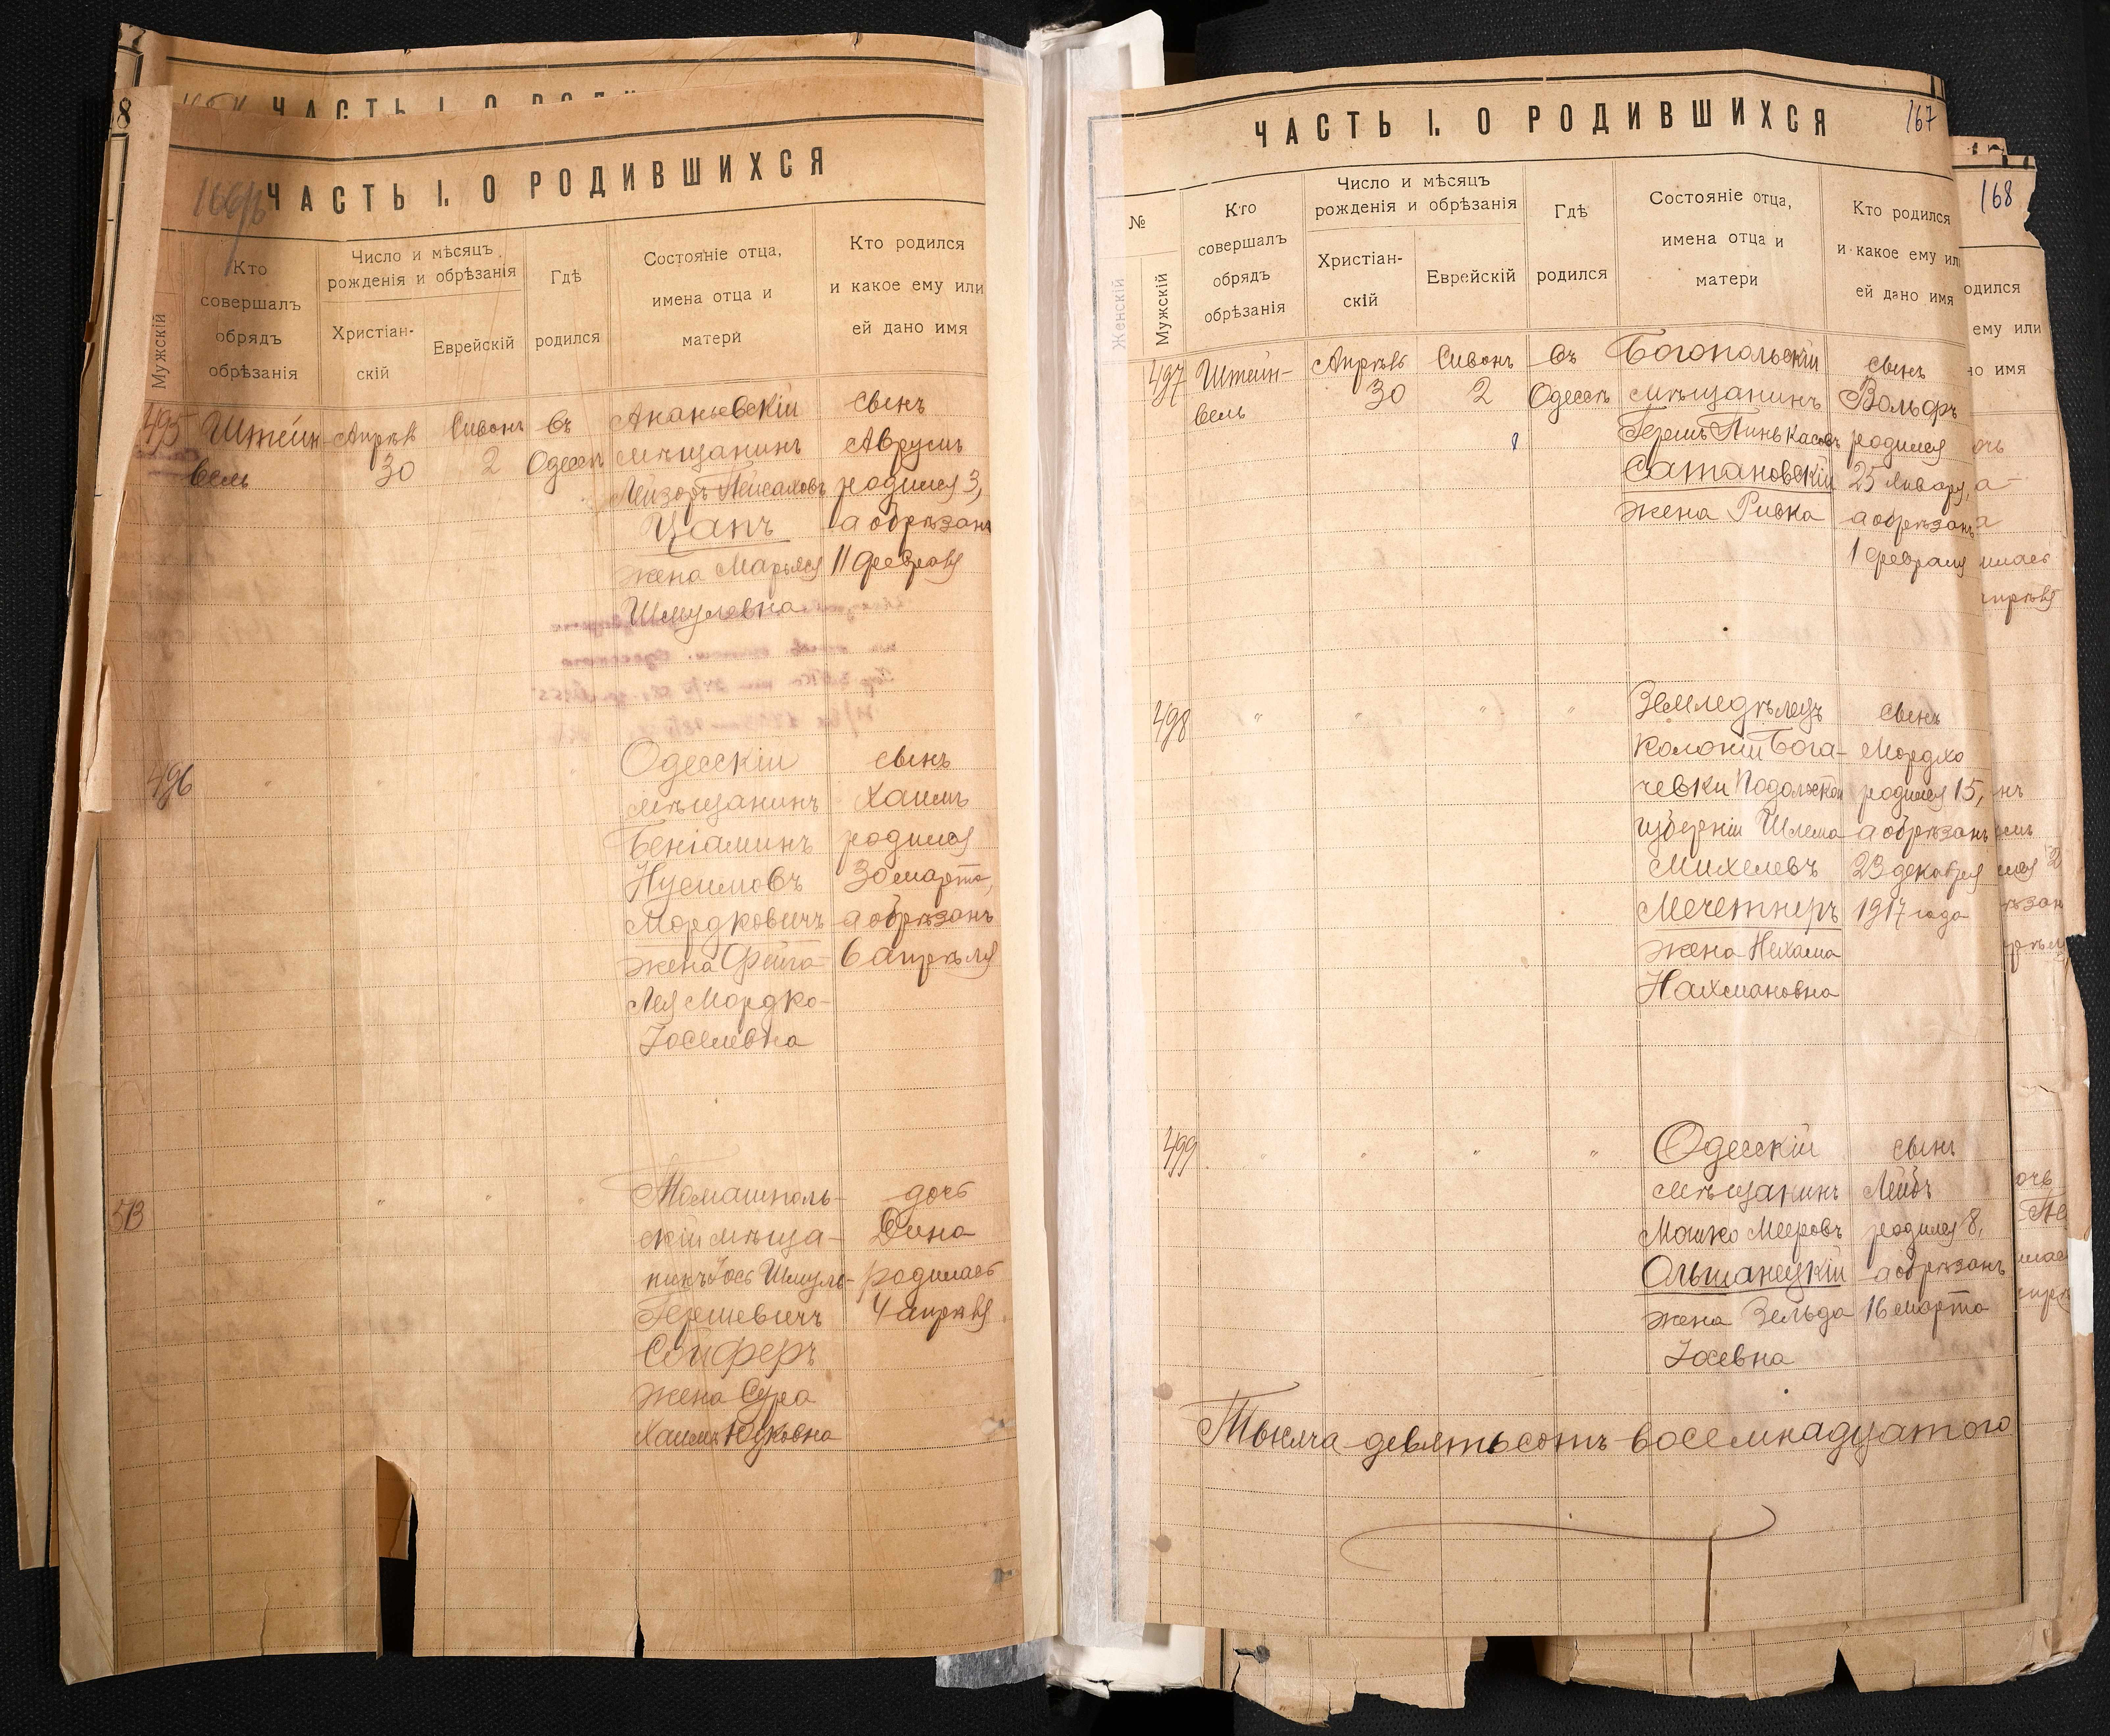 ЧАСТЬ I. О РОДИВШИХСЯ
Мужскій
Кто
совершалъ
обрядъ
обрѣзанія
Число и мѣсяцъ
рожденія и обрѣзанія
Христіан-
скій
Еврейскій
Гдѣ
родился
Состояніе отца,
имена отца и
матери
Кто родился
и какое ему или
ей дано имя
495
Штейн-
вель
30
Сивонъ
2
въ
Одессѣ
Ананьевскій
мѣщанинъ
Лейзоръ Пейсаховъ
Цапъ
жена Марьяся
Шмулевна
сынъ
Аврумъ
родился 3,
а обрѣзанъ
11 февраля
496
Одесскій
мѣщанинъ
Беніаминъ
Нусимовъ
Мордковичъ
жена Фейга-
Лея Мордко-
Іоселевна
сынъ
Хаимъ
родился
30 марта,
а обрѣзанъ
6 апрѣля
513
Томашполь-
скій мѣща-
нинъ Іось Шмуль-
Гершевичъ
Сойферъ
жена Сура
Хаимъ-Юдковна
дочь
Дина
родилась
4 апрѣля
ЧАСТЬ I. О РОДИВШИХСЯ
167
№
Женскій
Мужскій
Кто
совершалъ
обрядъ
обрѣзанія
Число и мѣсяцъ
рожденія и обрѣзанія
Христіан-
скій
Еврейскій
Гдѣ
родился
Состояніе отца,
имена отца и
матери
Кто родился
и какое ему или
ей дано имя
168
497
Штейн-
вель
30
Сивонъ
2
въ
Одессѣ
Богопольскій
мѣщанинъ
Гершъ Пинькасовъ
Сатановскій
жена Ривка
сынъ
Вольфъ
родился
25 января,
а обрѣзанъ
1 февраля
498
Земледѣлецъ
колоніи Бога-
чевки Подольской
губерніи Шлема
Михелевъ
Мечетнеръ
жена Нехама
Нахмановна
сынъ
Мордхо
родился 15,
а обрѣзанъ
23 декабря
1917 года
499
Одесскій
мѣщанинъ
Мошко Мееровъ
Ольшанецкій
жена Зельда
Іосевна
сынъ
Лейбъ
родился 8,
а обрѣзанъ
16 марта
Тысяча девятьсотъ восемнадцатого